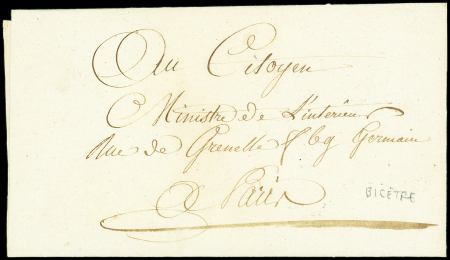 Au Citoyen
Ministre de L'interieur
Rue de Grenelle fbg Germain
A Paris
BICÊTRE